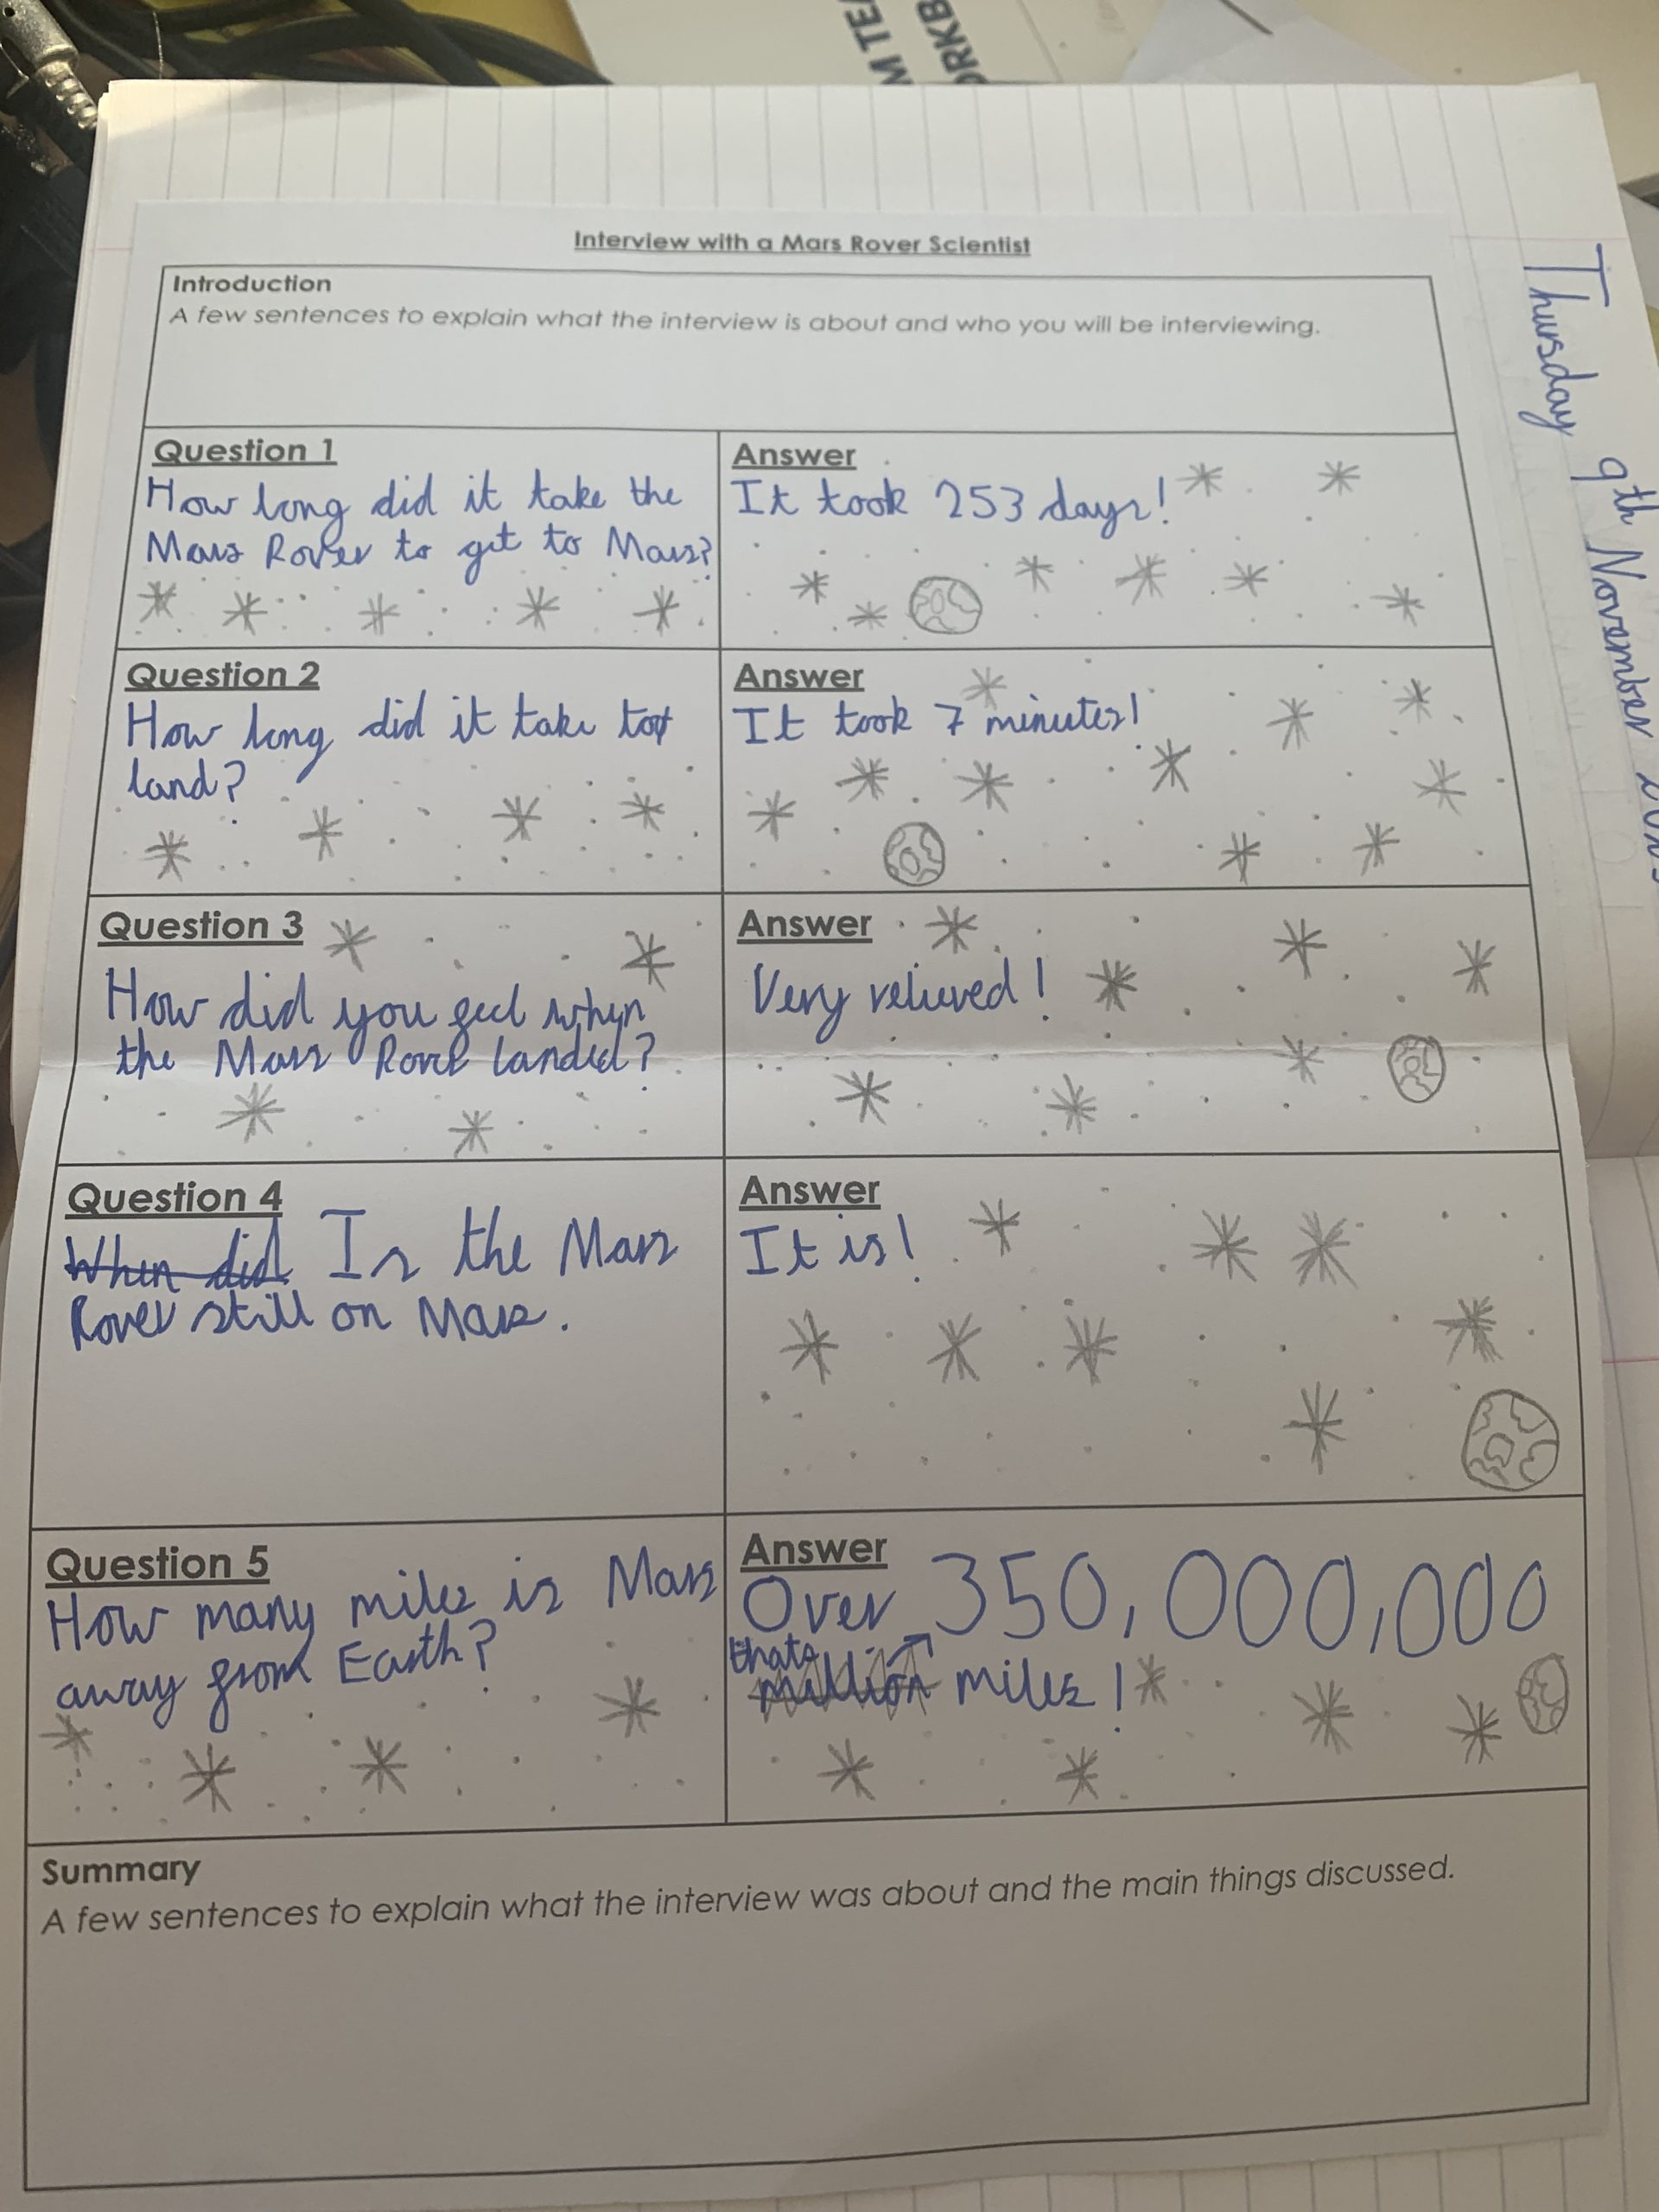 M TEA
ORKB
Thursday 9th November
Interview with a Mars Rover Scientist
Introduction
A few sentences to explain what the interview is about and who you will be interviewing.
Question 1
How long did it take the
Mars Rover to get to Mars?
Answer
It took 253 days!
Question 2
How long did it take to
land?
Answer
It took 7 minutes!
Question 3
How did you feel when
the Mars Rover landed?
Answer
Very relieved!
Question 4
When did Is the Mars
Rover still on Mars.
Answer
It is!
Question 5
How many miles is Mars
away from Earth?
Answer
Over 350,000,000
thats
million miles!
Summary
A few sentences to explain what the interview was about and the main things discussed.